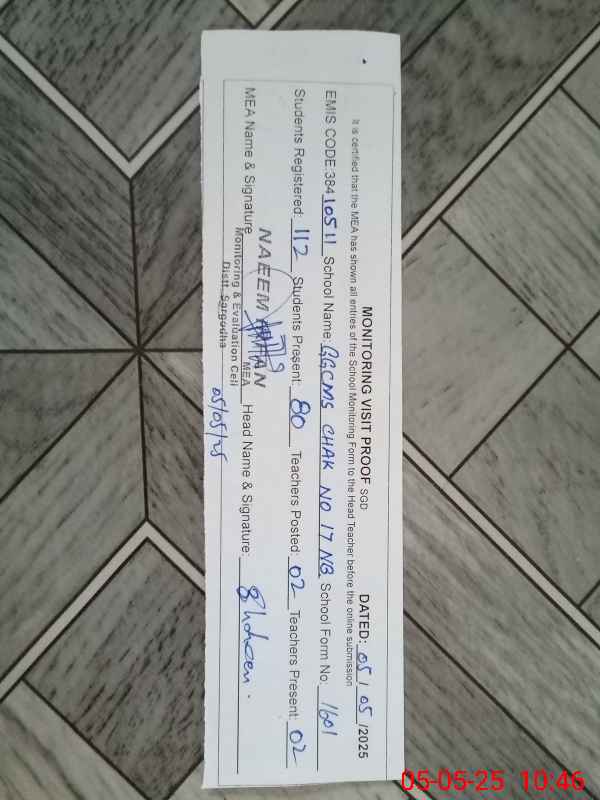 MONITORING VISIT PROOF SGD DATED: 05 / 05 /2025
It is certified that the MEA has shown all entries of the School Monitoring Form to the Head Teacher before the online submission
EMIS CODE:384 10511 School Name: GGCMS CHAK NO 17 NB School Form No. 1601
Students Registered: 112 Students Present: 80 Teachers Posted: 02 Teachers Present: 02
MEA Name & Signature Head Name & Signature:
NAEEM KHAN
MEA
Monitoring & Evaluation Cell
Distt. Sargodha
05/05/25
05-05-25 10:46